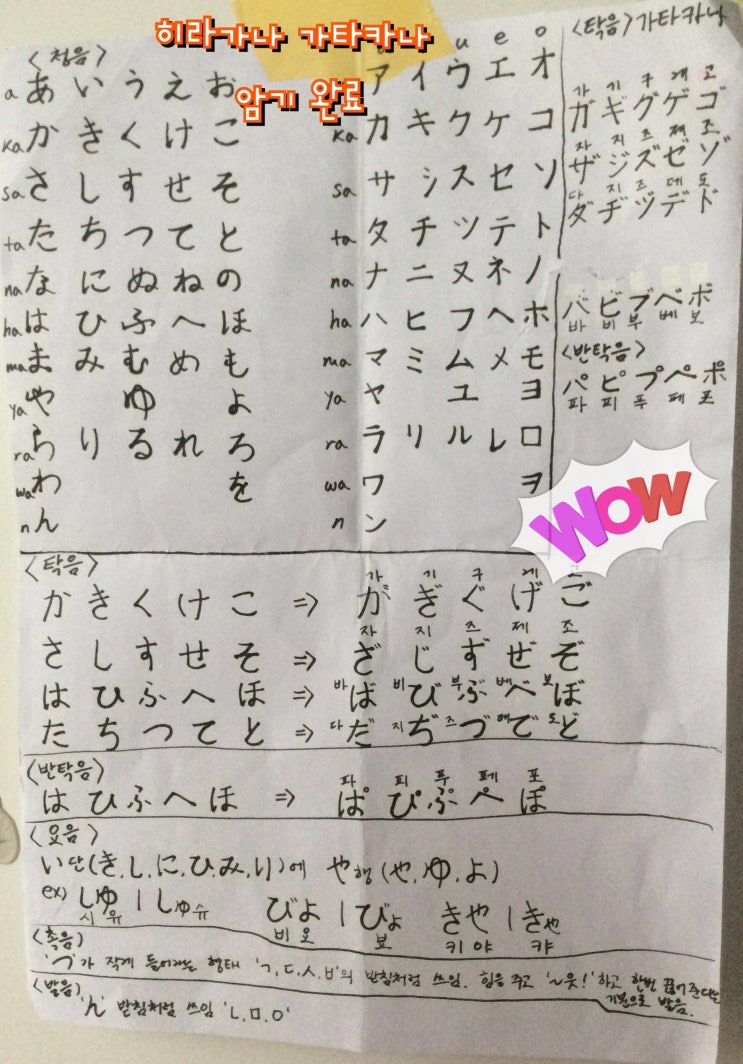 히라가나 가타카나
암기 완료
<청음>
a あ い う え お
ka か き く け こ
sa さ し す せ そ
ta た ち つ て と
na な に ぬ ね の
ha は ひ ふ へ ほ
ma ま み む め も
ya や ゆ よ
ra ら り る れ ろ
wa わ を
n ん
u e o
ア イ ウ エ オ
ka カ キ ク ケ コ
sa サ シ ス セ ソ
ta タ チ ツ テ ト
na ナ ニ ヌ ネ ノ
ha ハ ヒ フ ヘ ホ
ma マ ミ ム メ モ
ya ヤ ユ ヨ
ra ラ リ ル レ ロ
wa ワ ヲ
n ン
<탁음> 가타카나
가 기 구 게 고
ガ ギ グ ゲ ゴ
자 지 즈 제 조
ザ ジ ズ ゼ ゾ
다 지 즈 데 도
ダ ヂ ヅ デ ド
バ ビ ブ ベ ボ
바 비 부 베 보
<반탁음>
パ ピ プ ペ ポ
파 피 푸 페 포
WOW
<탁음>
가 기 구 게
か き く け こ ⇒ が ぎ ぐ げ ご
자 지 즈 제 조
さ し す せ そ ⇒ ざ じ ず ぜ ぞ
は ひ ふ へ ほ ⇒ 바 ば 비 び 부 ぶ 베 べ 보 ぼ
た ち つ て と ⇒ 다 だ 지 ぢ 즈 づ 데 で 도 ど
<반탁음>
파 피 푸 페 포
は ひ ふ へ ほ ⇒ ぱ ぴ ぷ ぺ ぽ
<요음>
い단(き,し,に,ひ,み,り)에 や행(や,ゆ,よ)
ex) しゆ | しゅ 슈 びよ | びょ きや | きゃ
시 유 비 요 뵤 키 야 캬
<촉음>
'つ'가 작게 들어가는 형태 'ㄱ,ㄷ,ㅅ,ㅂ'의 받침처럼 쓰임. 힘을 주고 '~읏!'하고 한번 끊어준다는
기분으로 발음.
<발음>
'ん' 받침처럼 쓰임 'ㄴ,ㅁ,ㅇ'